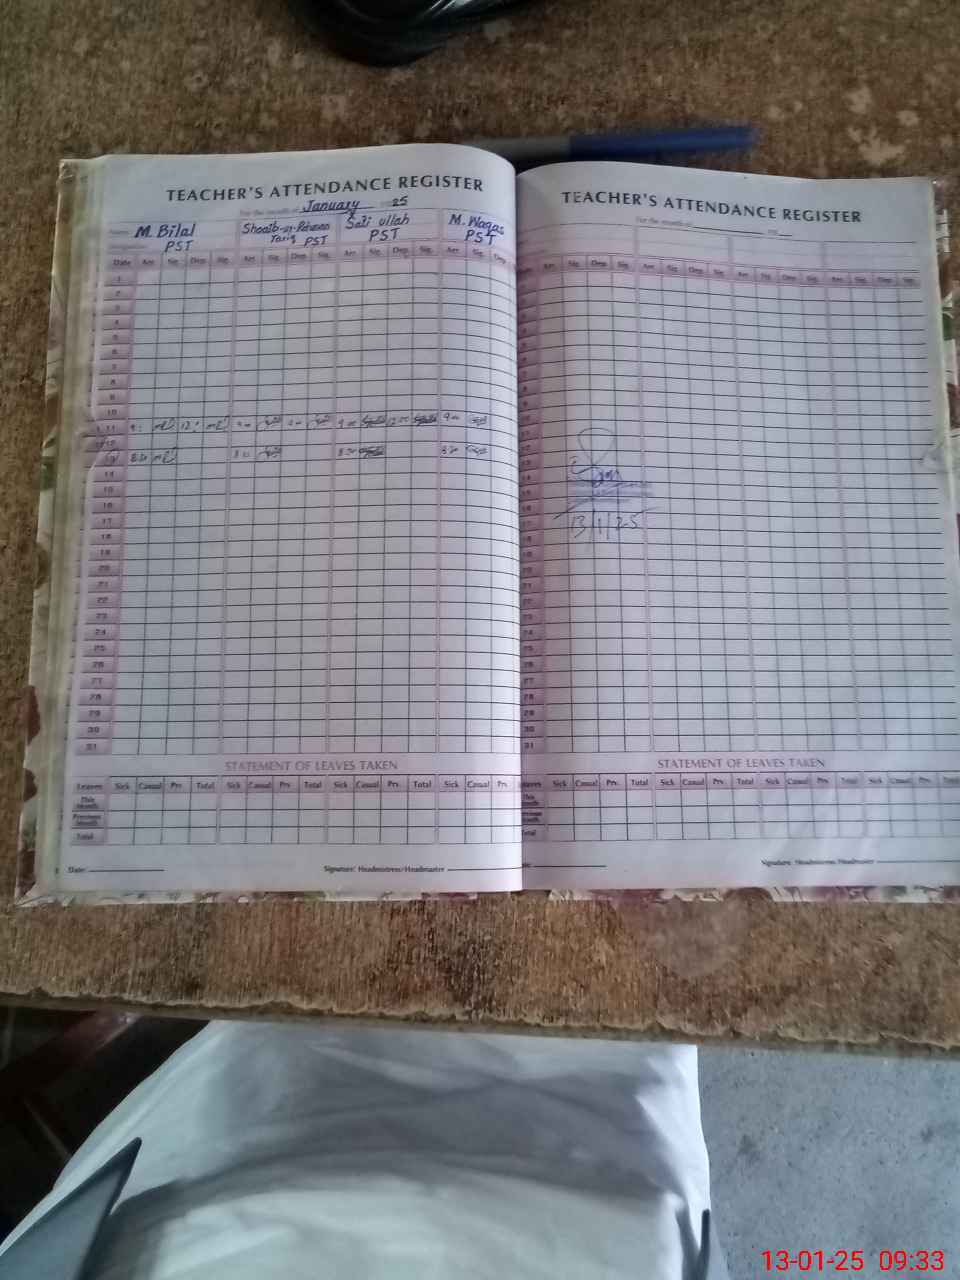 TEACHER'S ATTENDANCE REGISTER
For the month of January 25
M. Bilal PST Shoaib-ur-Rehman Tariq PST Safi ullah PST M. Waqas PST
Date Arr Sig. Dep Sig. Arr Sig. Dep. Sig. Arr Sig. Dep. Sig. Arr Sig. Dep.
1
2
3
4
5
6
7
8
9
10
11 9: 12: 9 00 9 00 12 00 9 00
12
13 8:30 8:30 8 30
14
15
16
17
18
19
20
21
22
23
24
25
26
27
28
29
30
31
STATEMENT OF LEAVES TAKEN
Leaves Sick Casual Prv. Total Sick Casual Prv. Total Sick Casual Prv. Total Sick Casual Prv.
This Month
Previous Month
Total
Date: Signature: Headmistress/Headmaster
TEACHER'S ATTENDANCE REGISTER
For the month of
Arr. Sig. Dep. Sig. Arr Sig. Dep. Sig. Arr Sig. Dep. Sig. Arr Sig. Dep. Sig.
13/1/25
STATEMENT OF LEAVES TAKEN
Leaves Sick Casual Prv. Total Sick Casual Prv. Total Sick Casual Prv. Total Sick Casual Prv. Total
This Month
Previous Month
Total
Signature: Headmistress/Headmaster
13-01-25 09:33